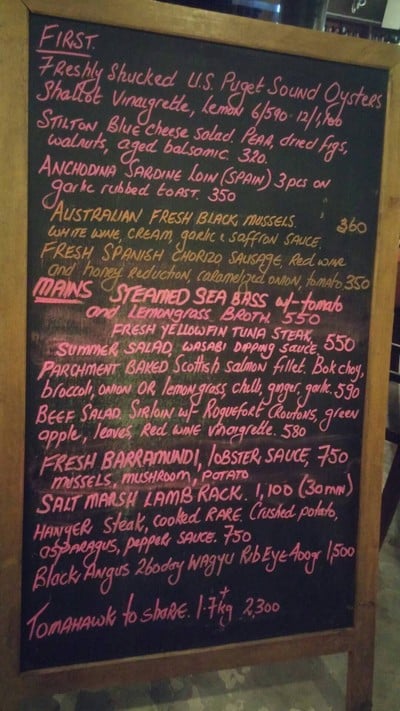 FIRST.
Freshly Shucked U.S. Puget Sound Oysters
Shallot Vinaigrette, lemon 6/590 12/1,100
STILTON, Blue cheese salad. PEAR, dried figs,
walnuts, aged balsamic. 320.
ANCHODINA SARDINE LOIN (SPAIN) 3pcs on
garlic rubbed TOAST. 350
AUSTRALIAN FRESH BLACK MUSSELS. 360
WHITE WINE, CREAM, garlic & SAFFRON SAUCE.
FRESH SPANISH CHORIZO SAUSAGE Red wine
and honey reduction, caramelized onion, tomato 350
MAINS STEAMED SEA BASS w/- tomato
and Lemongrass Broth. 550
FRESH YELLOWFIN TUNA STEAK,
SUMMER SALAD, WASABI DIPPING SAUCE. 550
PARCHMENT BAKED Scottish salmon fillet. Bok choy,
broccoli, onion OR, lemongrass chilli, ginger, garlic. 590
BEEF SALAD SIRLOIN w/- ROQUEFORT CROUTONS, green
apple, leaves, Red WINE Vinaigrette. 580
FRESH BARRAMUNDI, LOBSTER SAUCE, 750
MUSSELS, MUSHROOM, POTATO
SALT MARSH LAMB RACK. 1,100 (30 MIN)
HANGER STEAK, COOKED RARE. Crushed potato,
asparagus, pepper SAUCE. 750
Black Angus 260day WAGYU RIBEYE 400gr 1,500
TOMAHAWK to SHARE. 1.7+kg 2,300